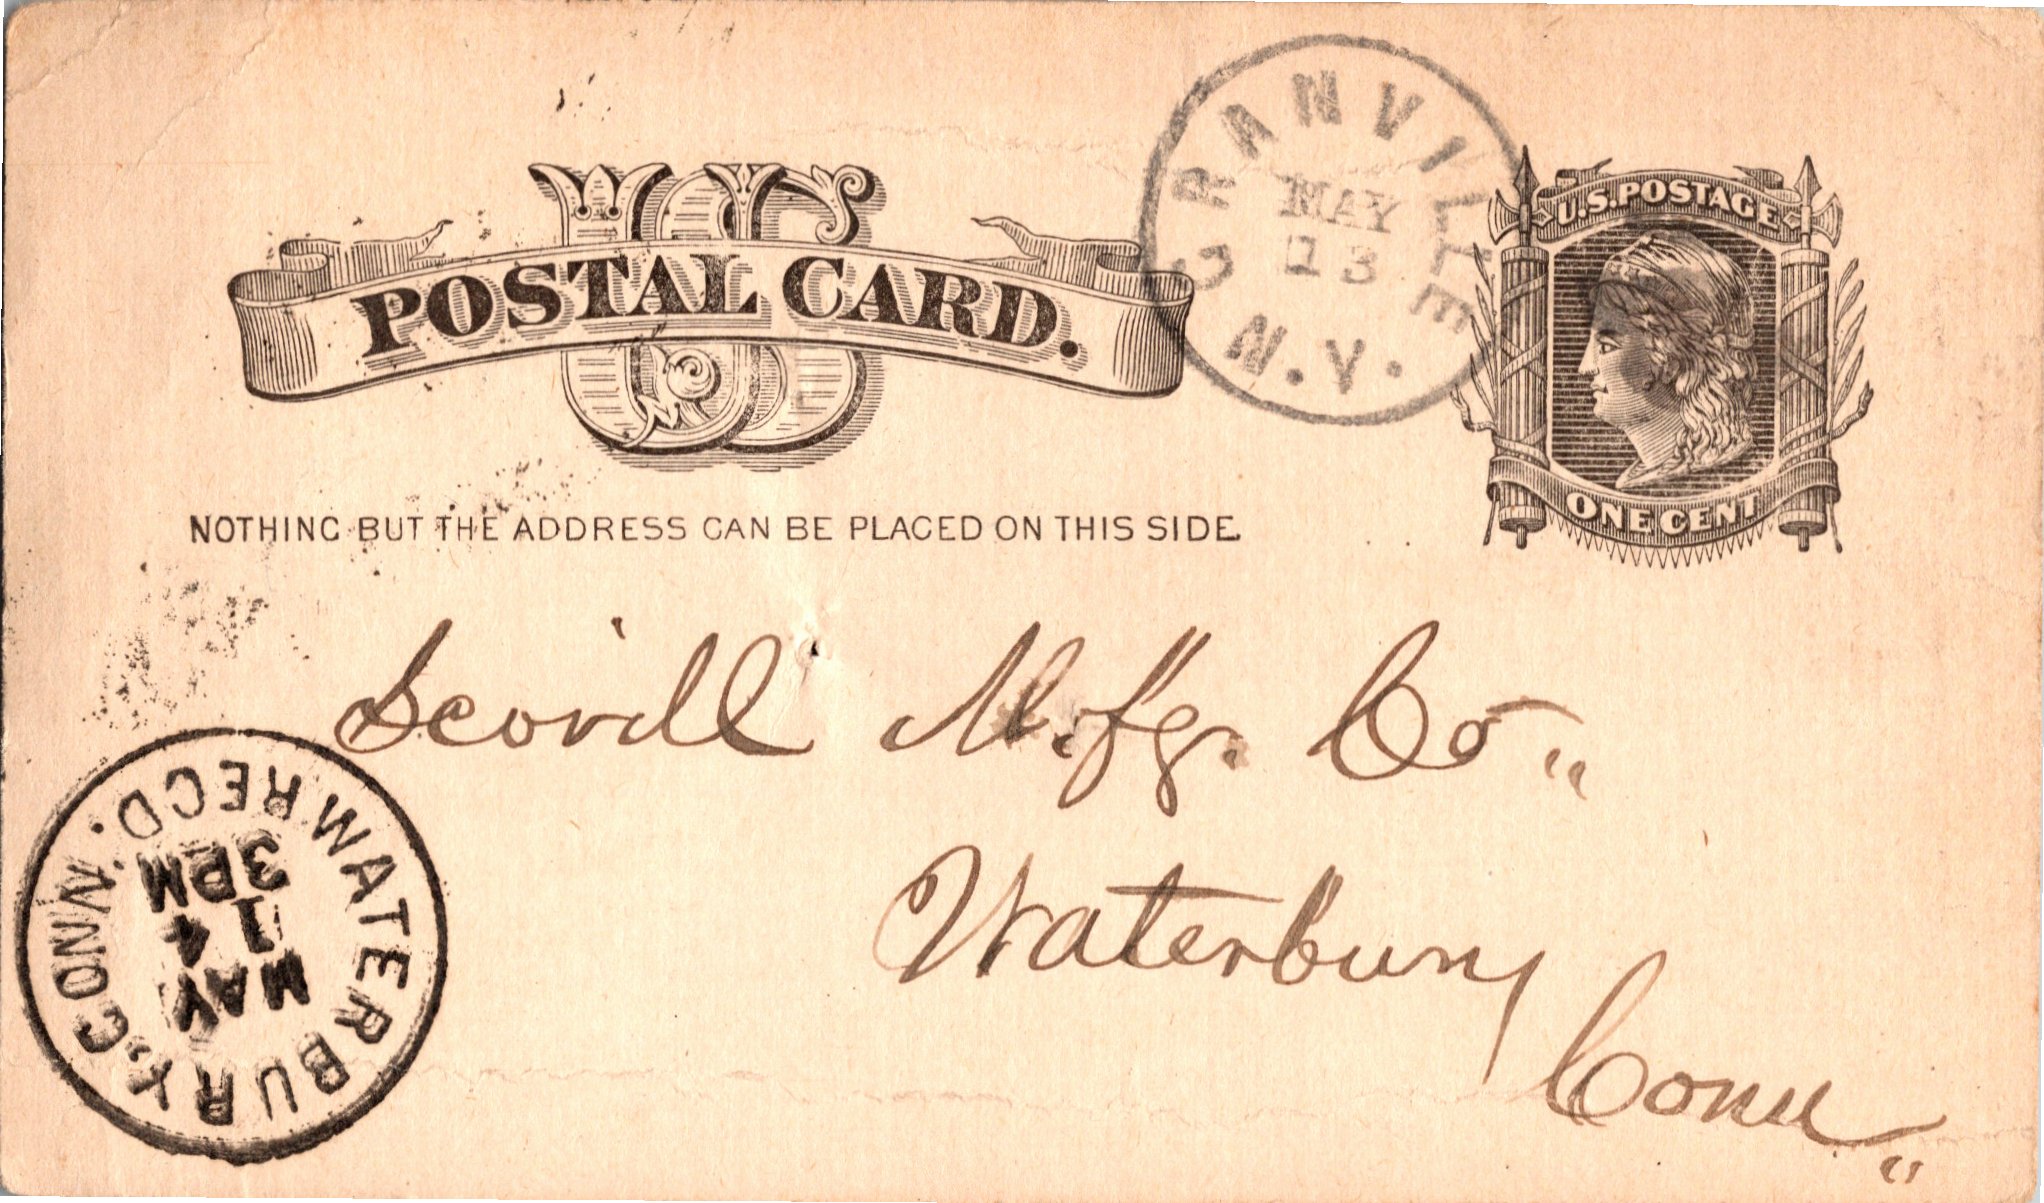 US
POSTAL CARD.
NOTHING BUT THE ADDRESS CAN BE PLACED ON THIS SIDE.
GRANVILLE
N.Y.
MAY
13
U.S. POSTAGE
ONE CENT
Scovill M.f'g. Co "
Waterbury
Conn "
WATERBURY, CONN.
REC'D.
MAY
14
3 PM